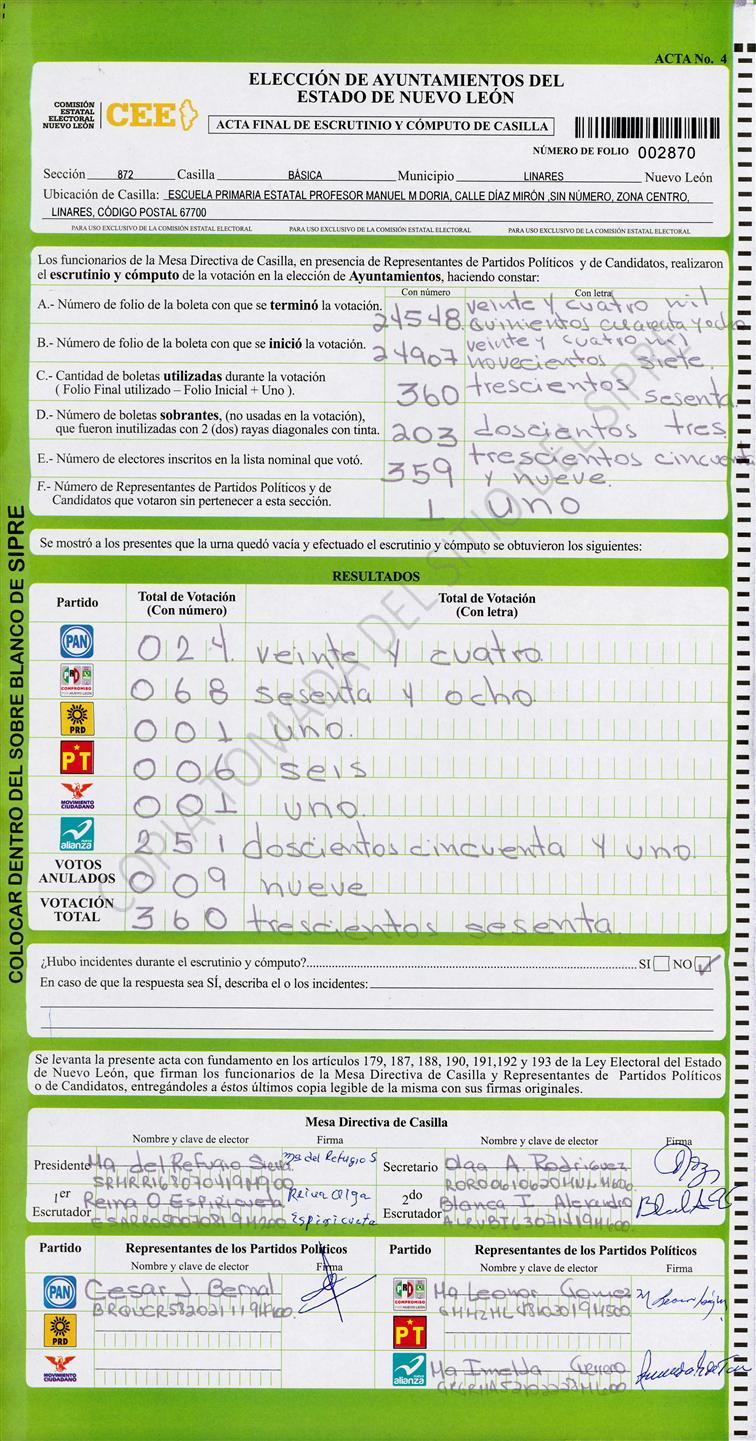 ACTA No. 4
ELECCIÓN DE AYUNTAMIENTOS DEL
ESTADO DE NUEVO LEÓN
COMISIÓN
ESTATAL
ELECTORAL
NUEVO LEÓN
CEE
ACTA FINAL DE ESCRUTINIO Y CÓMPUTO DE CASILLA
NÚMERO DE FOLIO 002870
Sección 872 Casilla BÁSICA Municipio LINARES Nuevo León
Ubicación de Casilla: ESCUELA PRIMARIA ESTATAL PROFESOR MANUEL M DORIA, CALLE DÍAZ MIRÓN ,SIN NÚMERO, ZONA CENTRO,
LINARES, CÓDIGO POSTAL 67700
PARA USO EXCLUSIVO DE LA COMISIÓN ESTATAL ELECTORAL PARA USO EXCLUSIVO DE LA COMISIÓN ESTATAL ELECTORAL PARA USO EXCLUSIVO DE LA COMISIÓN ESTATAL ELECTORAL
Los funcionarios de la Mesa Directiva de Casilla, en presencia de Representantes de Partidos Políticos y de Candidatos, realizaron
el escrutinio y cómputo de la votación en la elección de Ayuntamientos, haciendo constar:
Con número Con letra
A.- Número de folio de la boleta con que se terminó la votación. 24548. veinte y cuatro mil
quinientos cuarenta y ocho
B.- Número de folio de la boleta con que se inició la votación. 24907 veinte y cuatro mil
novecientos siete
C.- Cantidad de boletas utilizadas durante la votación
( Folio Final utilizado – Folio Inicial + Uno ). 360 trescientos sesenta
D.- Número de boletas sobrantes, (no usadas en la votación),
que fueron inutilizadas con 2 (dos) rayas diagonales con tinta. 203 doscientos tres.
E.- Número de electores inscritos en la lista nominal que votó. 359 trescientos cincuenta
y nueve.
F.- Número de Representantes de Partidos Políticos y de
Candidatos que votaron sin pertenecer a esta sección. 1 uno
Se mostró a los presentes que la urna quedó vacía y efectuado el escrutinio y cómputo se obtuvieron los siguientes:
RESULTADOS
Partido Total de Votación Total de Votación
(Con número) (Con letra)
PAN 024. veinte y cuatro.
PRI COMPROMISO POR NUEVO LEÓN 068 sesenta y ocho.
PRD 001 uno.
PT 006 seis
MOVIMIENTO CIUDADANO 001 uno.
nueva alianza 251 doscientos cincuenta y uno
VOTOS
ANULADOS 009 nueve
VOTACIÓN
TOTAL 360 trescientos sesenta.
¿Hubo incidentes durante el escrutinio y cómputo? SI NO ✓
En caso de que la respuesta sea SÍ, describa el o los incidentes:
Se levanta la presente acta con fundamento en los artículos 179, 187, 188, 190, 191,192 y 193 de la Ley Electoral del Estado
de Nuevo León, que firman los funcionarios de la Mesa Directiva de Casilla y Representantes de Partidos Políticos
o de Candidatos, entregándoles a éstos últimos copia legible de la misma con sus firmas originales.
Mesa Directiva de Casilla
Nombre y clave de elector Firma Nombre y clave de elector Firma
Presidente Ma del Refugio Ma del Refugio S Secretario Olga A. Rodriguez
1er
Escrutador Reina O Espiricueta Reina Olga
Espiricueta
2do
Escrutador Blanca I Alexandro
Partido Representantes de los Partidos Políticos Partido Representantes de los Partidos Políticos
Nombre y clave de elector Firma Nombre y clave de elector Firma
PAN Cesar J. Bernal
PRI COMPROMISO POR NUEVO LEÓN Ma Leonor Gomez
PRD
PT
MOVIMIENTO CIUDADANO
nueva alianza Ma Imelda
COLOCAR DENTRO DEL SOBRE BLANCO DE SIPRE
COPIA TOMADA DEL SITIO DEL SIPRE